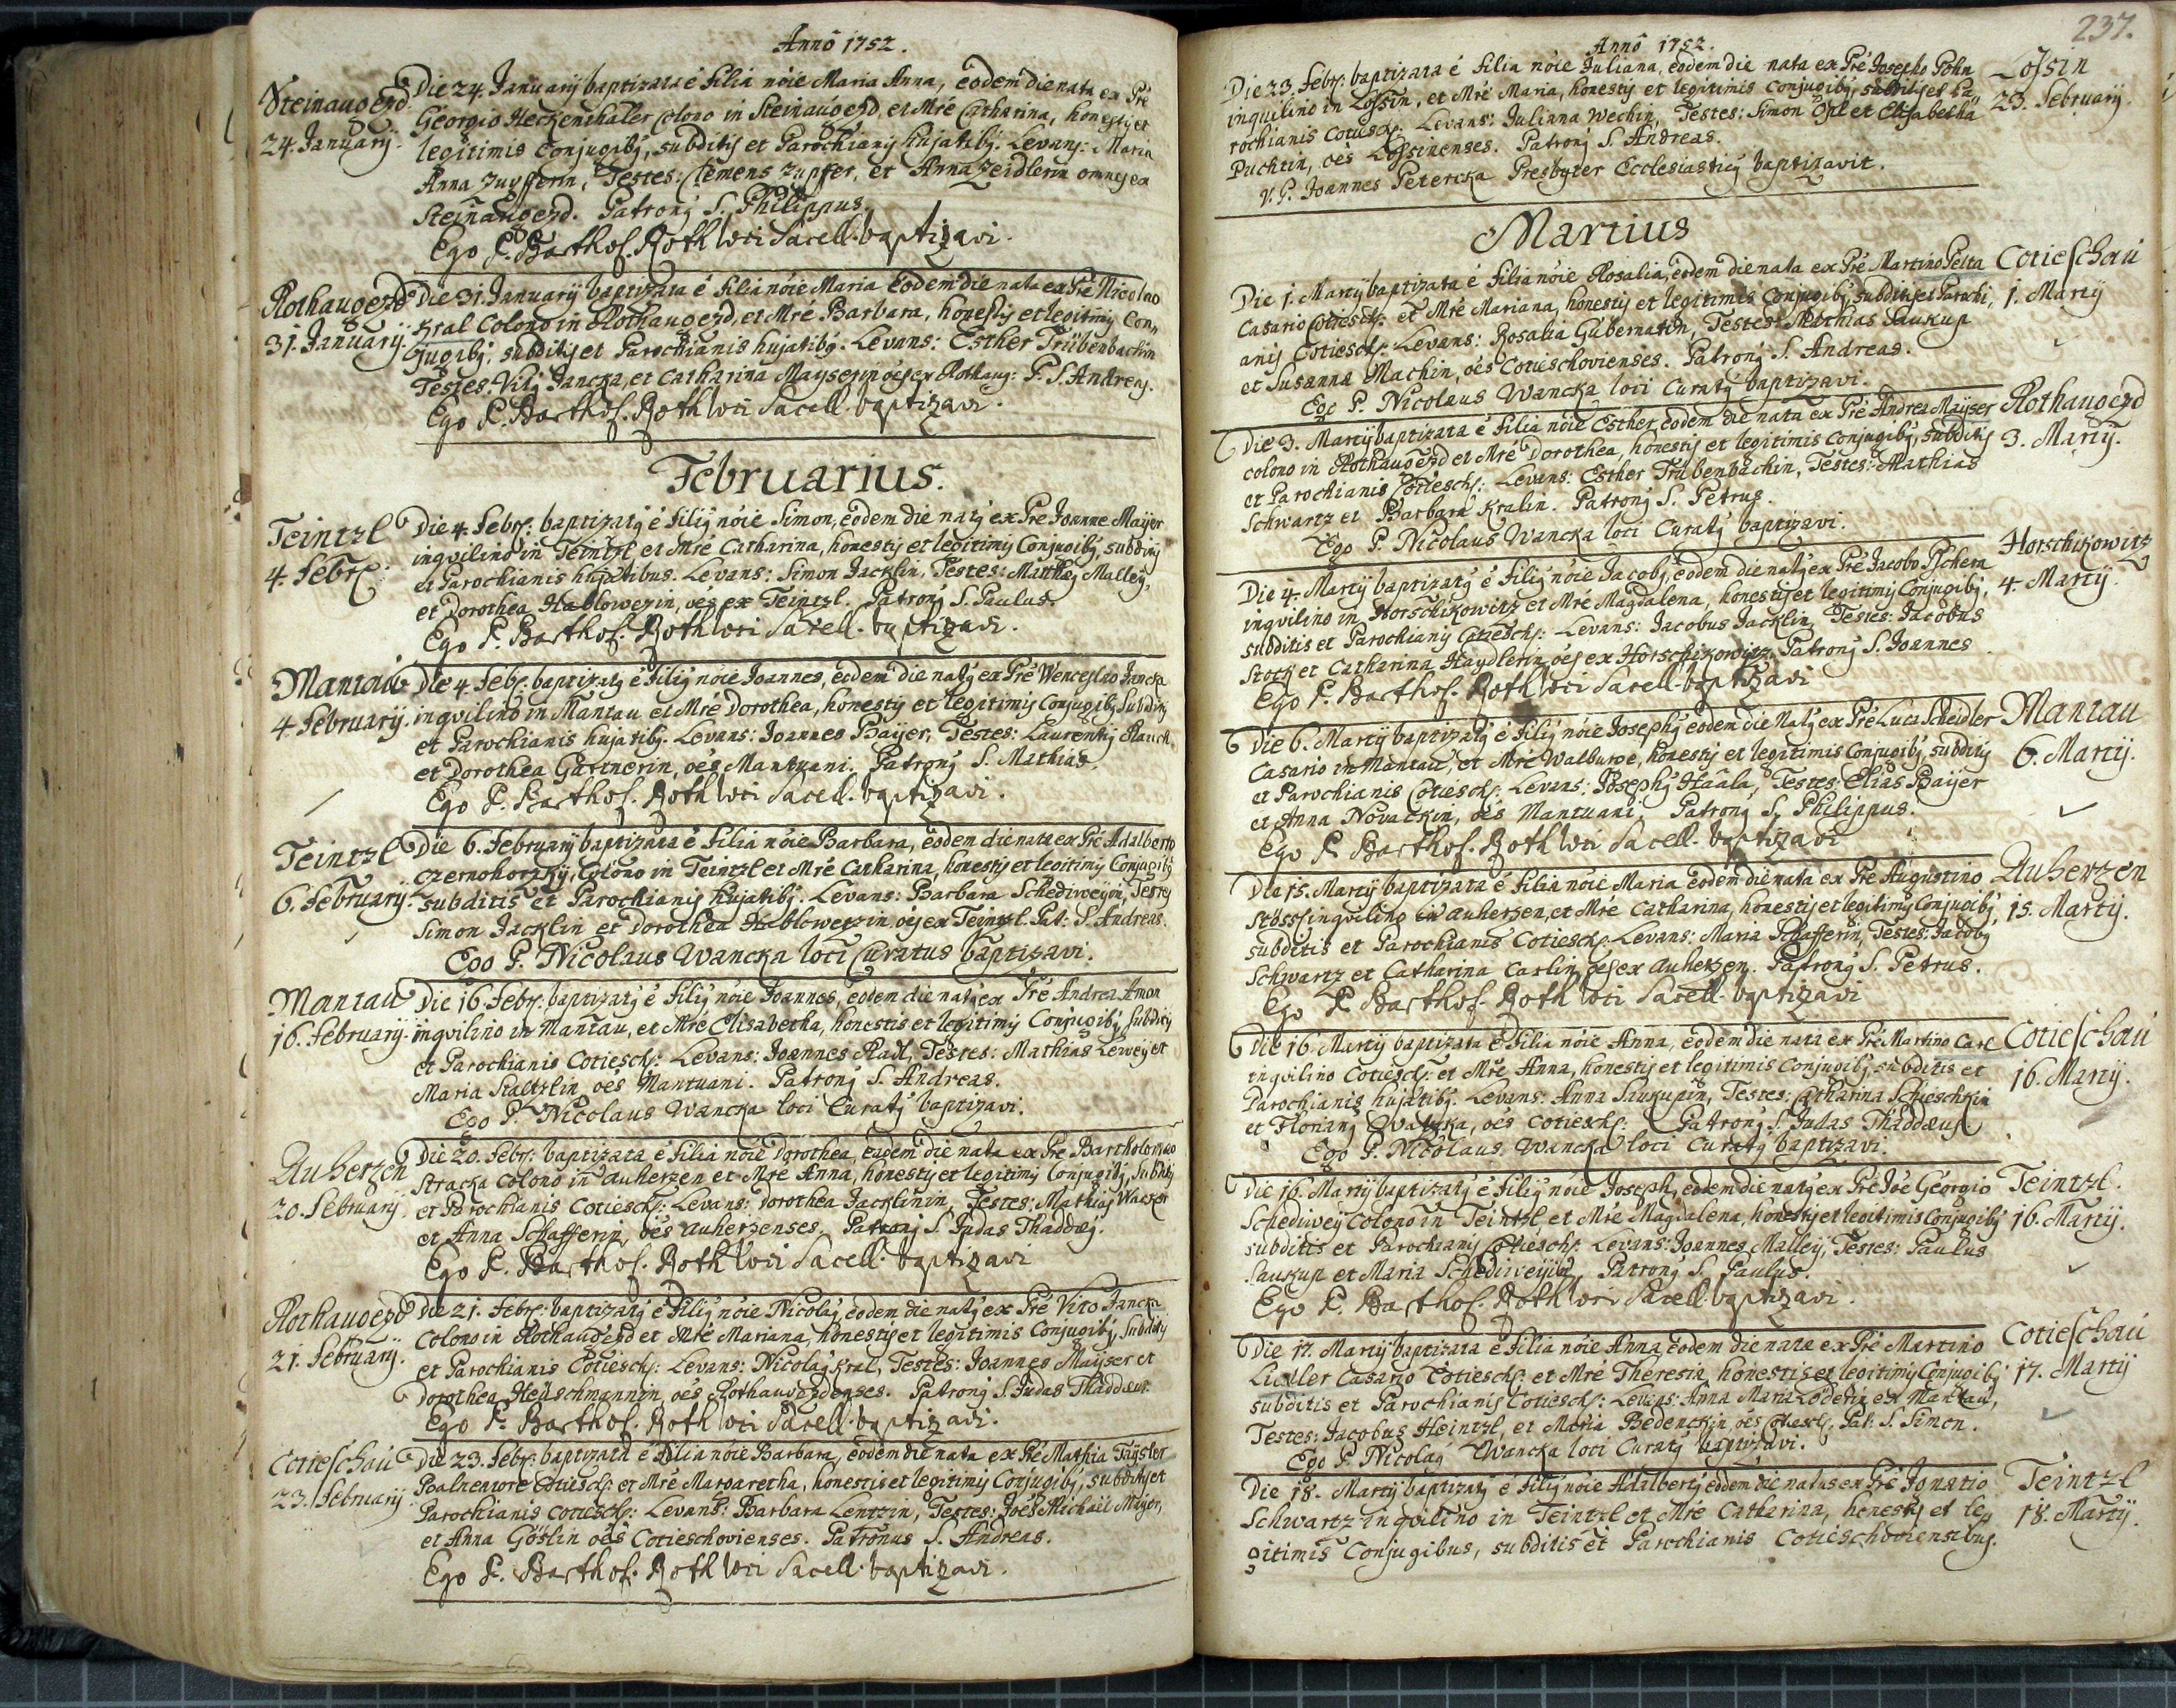 Annô 1752.
Steinaugezd. Die 24. Januarij baptizata é filia nóie Maria Anna, eôdem die nata ex Pré
24. Januarij. Georgio Heckenthaler colono in Steinaugezd, et Mré Catharina, honestis et
legitimis Conjugibg, subditis et Parochianis hujatibg. Levans: Maria
Anna Zupfferin, Testes: Clemens Zupffer, et Anna Zeidlerin omnes ex
Steinaugezd. Patrong S. Philippus.
Ego P. Barthol. Roth loci Sacell. baptizavi.
Rothaugezd Die 31. Januarij baptizata é filia nóie Maria eôdem die nata ex Pré Nicolao
31. Januarij. Kral Colono in Rothaugezd, et Mré Barbara, honestis et legitimis Con„
jugibg, subditis et Parochianis hujatibg. Levans: Esther Trübenbachin
Testes: Vitg Jancka, et Catharina Mayserin óes ex Rothaug: P. S. Andreas.
Ego P. Barthol. Roth loci Sacell. baptizavi.
Februarius.
Teintzl Die 4. Febr: baptizatg é filig nóie Simon, eôdem die natg ex Pré Joanne Maijer
4. Febr: inqvilino in Teintzl et Mré Catharina, honestis et legitimis Conjugibg, subditis
et Parochianis hujatibus. Levans: Simon Jacklin, Testes: Matthæg Malleij,
et Dorothea Hablowezin, óes ex Teintzl. Patrong S. Paulus.
Ego P. Barthol. Roth loci Sacell. baptizavi.
Mantau Die 4. Febr: baptizatg é filig nóie Joannes, eôdem die natg ex Pré Wenceslao Jancka
4. Februarij. inqvilino in Mantau et Mré Dorothea, honestis et legitimis Conjugibg subditis
et Parochianis hujatibg. Levans: Joannes Baijer, Testes: Laurentig Rauch
et Dorothea Gärtnerin, óes Mantuani. Patrong S. Mathias.
Ego P. Barthol. Roth loci Sacell. baptizavi.
Teintzl Die 6. Februarij baptizata é filia nóie Barbara, eôdem die nata ex Pré Adalberto
6. Februarij. Czernohorzky, Colono in Teintzl et Mré Catharina, honestis et legitimis Conjugibg
subditis et Parochianis hujatibg. Levans: Barbara Schediweyin, Testes
Simon Jacklin et Dorothea Hablowetzin óes ex Teintzl. Pat: S. Andreas.
Ego P. Nicolaus Wancka loci Curatus baptizavi.
Mantau Die 16. Febr: baptizatg é filig nóie Joannes, eôdem die natg ex Pré Andrea Amon
16. Februarij. inqvilino in Mantau, et Mré Elisabetha, honestis et legitimis Conjugibg subditis
et Parochianis Cotiesch: Levans: Joannes Radl, Testes: Mathias Leweij et
Maria Staltzlin óes Mantuani. Patrong S. Andreas.
Ego P. Nicolaus Wancka loci Curatg baptizavi.
Auherzen Die 20. Febr: baptizata é filia nóie Dorothea, eadem die nata ex Pré Bartholomæo
20. Februarij. Stracka Colono in Auherzen et Mré Anna, honestis et legitimis Conjugibg, subditis
et Parochianis Cotiesch: Levans: Dorothea Jacklinin, Testes: Mathias Waczer
et Anna Schafferin, óes Auherzenses. Patrong S. Judas Thaddæg.
Ego P. Barthol. Roth loci Sacell. baptizavi
Rothaugezd Die 21. Febr: baptizatg é filig nóie Nicolag eodem die natg ex Pré Vito Jancka
21. Februarij. Colono in Rothaugezd et Mré Mariana, honestis et legitimis Conjugibg, subditis
et Parochianis Cotiesch: Levans: Nicolag Kral, Testes: Joannes Mayser et
Dorothea Heuschmannin, óes Rothaugezdenses. Patrong S. Judas Thaddæus.
Ego P. Barthol. Roth loci Sacell. baptizavi.
Cotieschau Die 23. Febr: baptizata é filia nóie Barbara, eodem die nata ex Pré Mathia Taysler
23. Februarij. Balneatore Cotiesch: et Mré Margaretha, honestis et legitimis Conjugibg, subditis et
Parochianis Cotiesch: Levans: Barbara Lentzin, Testes: Joés Michael Meijer,
et Anna Göslin óes Cotieschovienses. Patronus S. Andreas.
Ego P. Barthol. Roth loci Sacell. baptizavi.
237.
Annô 1752.
Die 23. Febr: baptizata é filia nóie Juliana, eodem die nata ex Pré Josepho Pohn Lossin
inquilino in Lossin, et Mré Maria, honestis et legitimis Conjugibg, subditis et Pa„ 23. Februarij.
rochianis Cotiesch: Levans: Juliana Wechin, Testes: Simon Opl et Elisabetha
Puchtin, óes Lossinenses. Patrong S. Andreas.
V. P. Joannes Petercka Presbyter Ecclesiasticg baptizavit.
Martius
Die 1. Martij baptizata é filia nóie Rosalia, eodem die nata ex Pré Martino Pelta Cotieschau
Casario Cotiesch: et Mré Mariana, honestis et legitimis Conjugibg, subditis et Parochi„ 1. Martij
anis Cotiesch: Levans: Rosalia Gubernatin, Testes: Mathias Saukup
et Susanna Machin, óes Cotieschovienses. Patrong S. Andreas.
Ego P. Nicolaus Wancka loci Curatg baptizavi.
Die 3. Martij baptizata é filia nóie Esther, eodem die nata ex Pré Andrea Mayser Rothaugezd
colono in Rothaugezd et Mré Dorothea, honestis et legitimis Conjugibg, subditis 3. Martij.
et Parochianis Cotiesch: Levans: Esther Trübenbachin, Testes: Mathias
Schwartz et Barbara Kralin. Patrong S. Petrus.
Ego P. Nicolaus Wancka loci Curatg baptizavi.
Die 4. Martij baptizatg é filig nóie Jacobg, eodem die natg ex Pré Jacobo Pschera Horschikowitz
inqvilino in Horschikowitz et Mré Magdalena, honestis et legitimis Conjugibg, 4. Martij.
subditis et Parochianis Cotiesch: Levans: Jacobus Jacklin, Testes: Jacobus
Stock et Catharina Haydlerin óes ex Horschikowitz. Patrong S. Joannes
Ego P. Barthol. Roth loci Sacell. baptizavi
Die 6. Martij baptizatg é filig nóie Josephg eodem die natg ex Pré Luca Scheidler Mantau
Casario in Mantau, et Mré Walburge, honestis et legitimis Conjugibg, subditis 6. Martij.
et Parochianis Cotiesch: Levans: Josephg Haala, Testes: Elias Baijer
et Anna Novackin, óes Mantuani. Patrong S. Philippus.
Ego P. Barthol. Roth loci Sacell. baptizavi
Die 15. Martij baptizata é filia nóie Maria eodem die nata ex Pré Augustino Auherzen
Stöss inqvilino in Auherzen, et Mré Catharina, honestis et legitimis Conjugibg, 15. Martij.
subditis et Parochianis Cotiesch: Levans: Maria Schafferin, Testes: Jacobg
Schwartz et Catharina Carlin óes ex Auherzen. Patrong S. Petrus.
Ego P. Barthol. Roth loci Sacell. baptizavi
Die 16. Martij baptizata é filia nóie Anna, eodem die nata ex Pré Martino Carl Cotieschau
inqvilino Cotiesch: et Mré Anna, honestis et legitimis Conjugibg subditis et 16. Martij.
Parochianis hujatibg. Levans: Anna Saukupin, Testes: Catharina Schieschkin
et Floriang Watzka, óes Cotiesch: Patrong S. Judas Thaddæus
Ego P. Nicolaus Wancka loci Curatg baptizavi.
Die 16. Martij baptizatg é filig nóie Joseph, eodem die natg ex Pré Joé Georgio Teintzl.
Schediweij Colono in Teintzl, et Mré Magdalena, honestis et legitimis Conjugibg 16. Martij.
subditis et Parochianis Cotiesch: Levans: Joannes Malleij, Testes: Paulus
Saukup et Maria Schediweijin, Patrong S. Paulus.
Ego P. Barthol. Roth loci Sacell. baptizavi.
Die 17. Martij baptizata é filia nóie Anna eodem die nata ex Pré Martino Cotieschau
Lidller Casario Cotiesch: et Mré Theresia, honestis et legitimis Conjugibg 17. Martij
subditis et Parochianis Cotiesch: Levans: Anna Maria Loderin ex Mantau,
Testes: Jacobus Heintzl, et Maria Bedenckin óes Cotiesch: Pat: S. Simon.
Ego P. Nicolag Wancka loci Curatg baptizavi.
Die 18. Martij baptizatg é filig nóie Adalbertg eodem die natus ex Pré Ignatio Teintzl
Schwartz inqvilino in Teintzl et Mré Catharina, honestis et le„ 18. Martij.
gitimis Conjugibus, subditis et Parochianis Cotieschoviensibus.